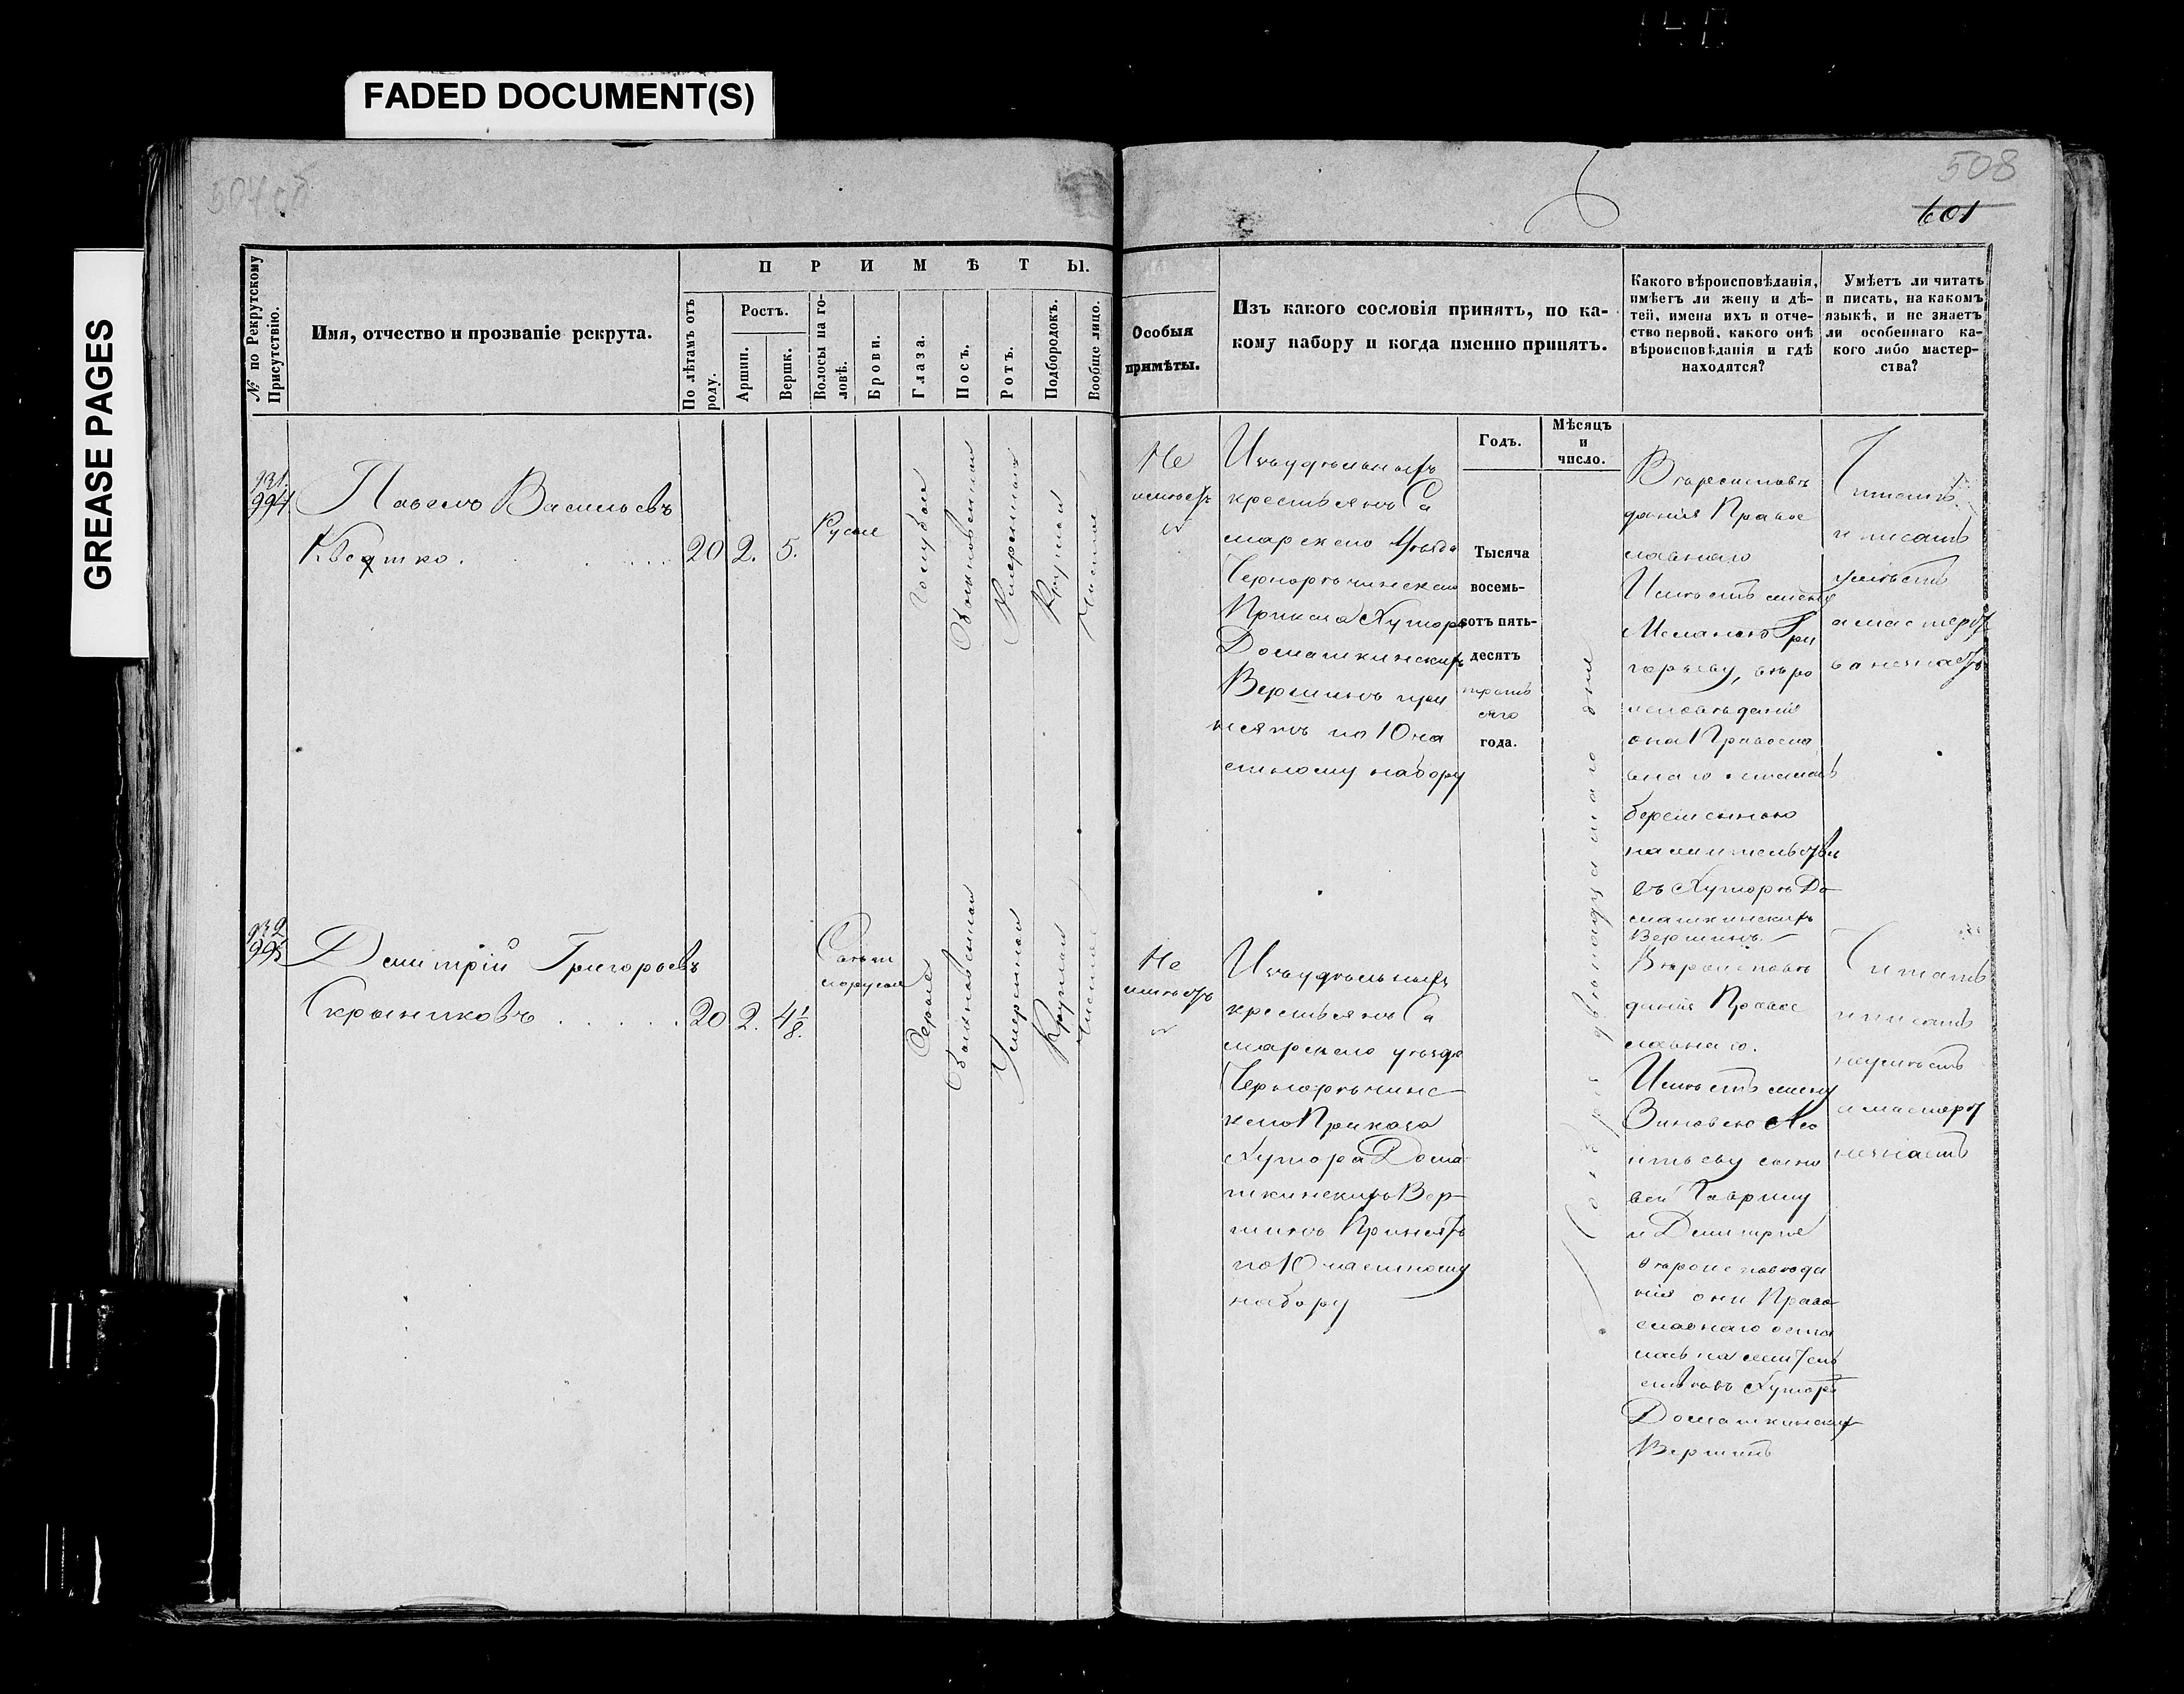 FADED DOCUMENT(S)
GREASE PAGES
508
601
№ по Рекрутскому
Присутствію.
Имя, отчество и прозваніе рекрута.
ПРИМѢТЫ.
По лѣтамъ отъ
роду.
Ростъ.
Аршин.
Вершк.
Волосы на го-
ловѣ.
Брови.
Глаза.
Носъ.
Ротъ.
Подбородокъ.
Вообще лицо.
Особыя
примѣты.
Изъ какого сословія принятъ, по ка-
кому набору и когда именно принятъ.
Годъ.
Мѣсяцъ
и
число.
Какого вѣроисповѣданія,
имѣетъ ли жену и дѣ-
тей, имена ихъ и отче-
ство первой, какого онѣ
вѣроисповѣданія и гдѣ
находятся?
Умѣетъ ли читать
и писать, на какомъ
языкѣ, и не знаетъ
ли особеннаго ка-
кого либо мастер-
ства?
931.
994
Павелъ Васильевъ
Квятко
20
2.
5.
Русые
Голубые
Обыкновенный
Умеренный
Круглый
Чистое
Не
имѣетъ
Изъ удѣльныхъ
крестьянъ Са
марскаго Уѣзда
Чернорѣчинскаго
Приказа Хутора
Домашкинскихъ
Вершинъ при
нятъ по 10 ча
стному набору
Тысяча
восемь-
сотъ пять-
десятъ
третьяго
года.
двѣнадцатаго дня
Вѣроисповѣ
данія Право
славнаго
Имѣетъ жену
Меланью Гри
горьеву, вѣро
исповѣданія
она Правосла
внаго осталась
беременною
на жительствѣ
въ Хуторѣ До
машкинскихъ
Вершинъ.
Читать
и писать
умѣетъ
а мастерст
ва незнаетъ
932
995
Дмитрій Григорьевъ
Скрынниковъ
20
2.
4 1/8.
Свѣтл
орусые
Серые
Обыкновенный
Умеренный
Круглый
Чистое
Не
имѣетъ
Изъ удѣльныхъ
крестьянъ Са
марскаго уѣзда
Чернорѣчинс-
каго Приказа
Хутора Дома-
шкинскихъ Вер-
шинъ Принятъ
по 10 частному
набору
Вѣроисповѣ
данія Право
славнаго.
Имѣетъ жену
Зиновью
сыно
вей Гаврилу
и Дмитрія
вѣроисповѣда
нія они Право
славнаго оста
лась на жител
ствѣ въ Хуторѣ
Домашкинских
Вершинъ
Читать
и писать
неумѣетъ
и мастерст
незнаетъ